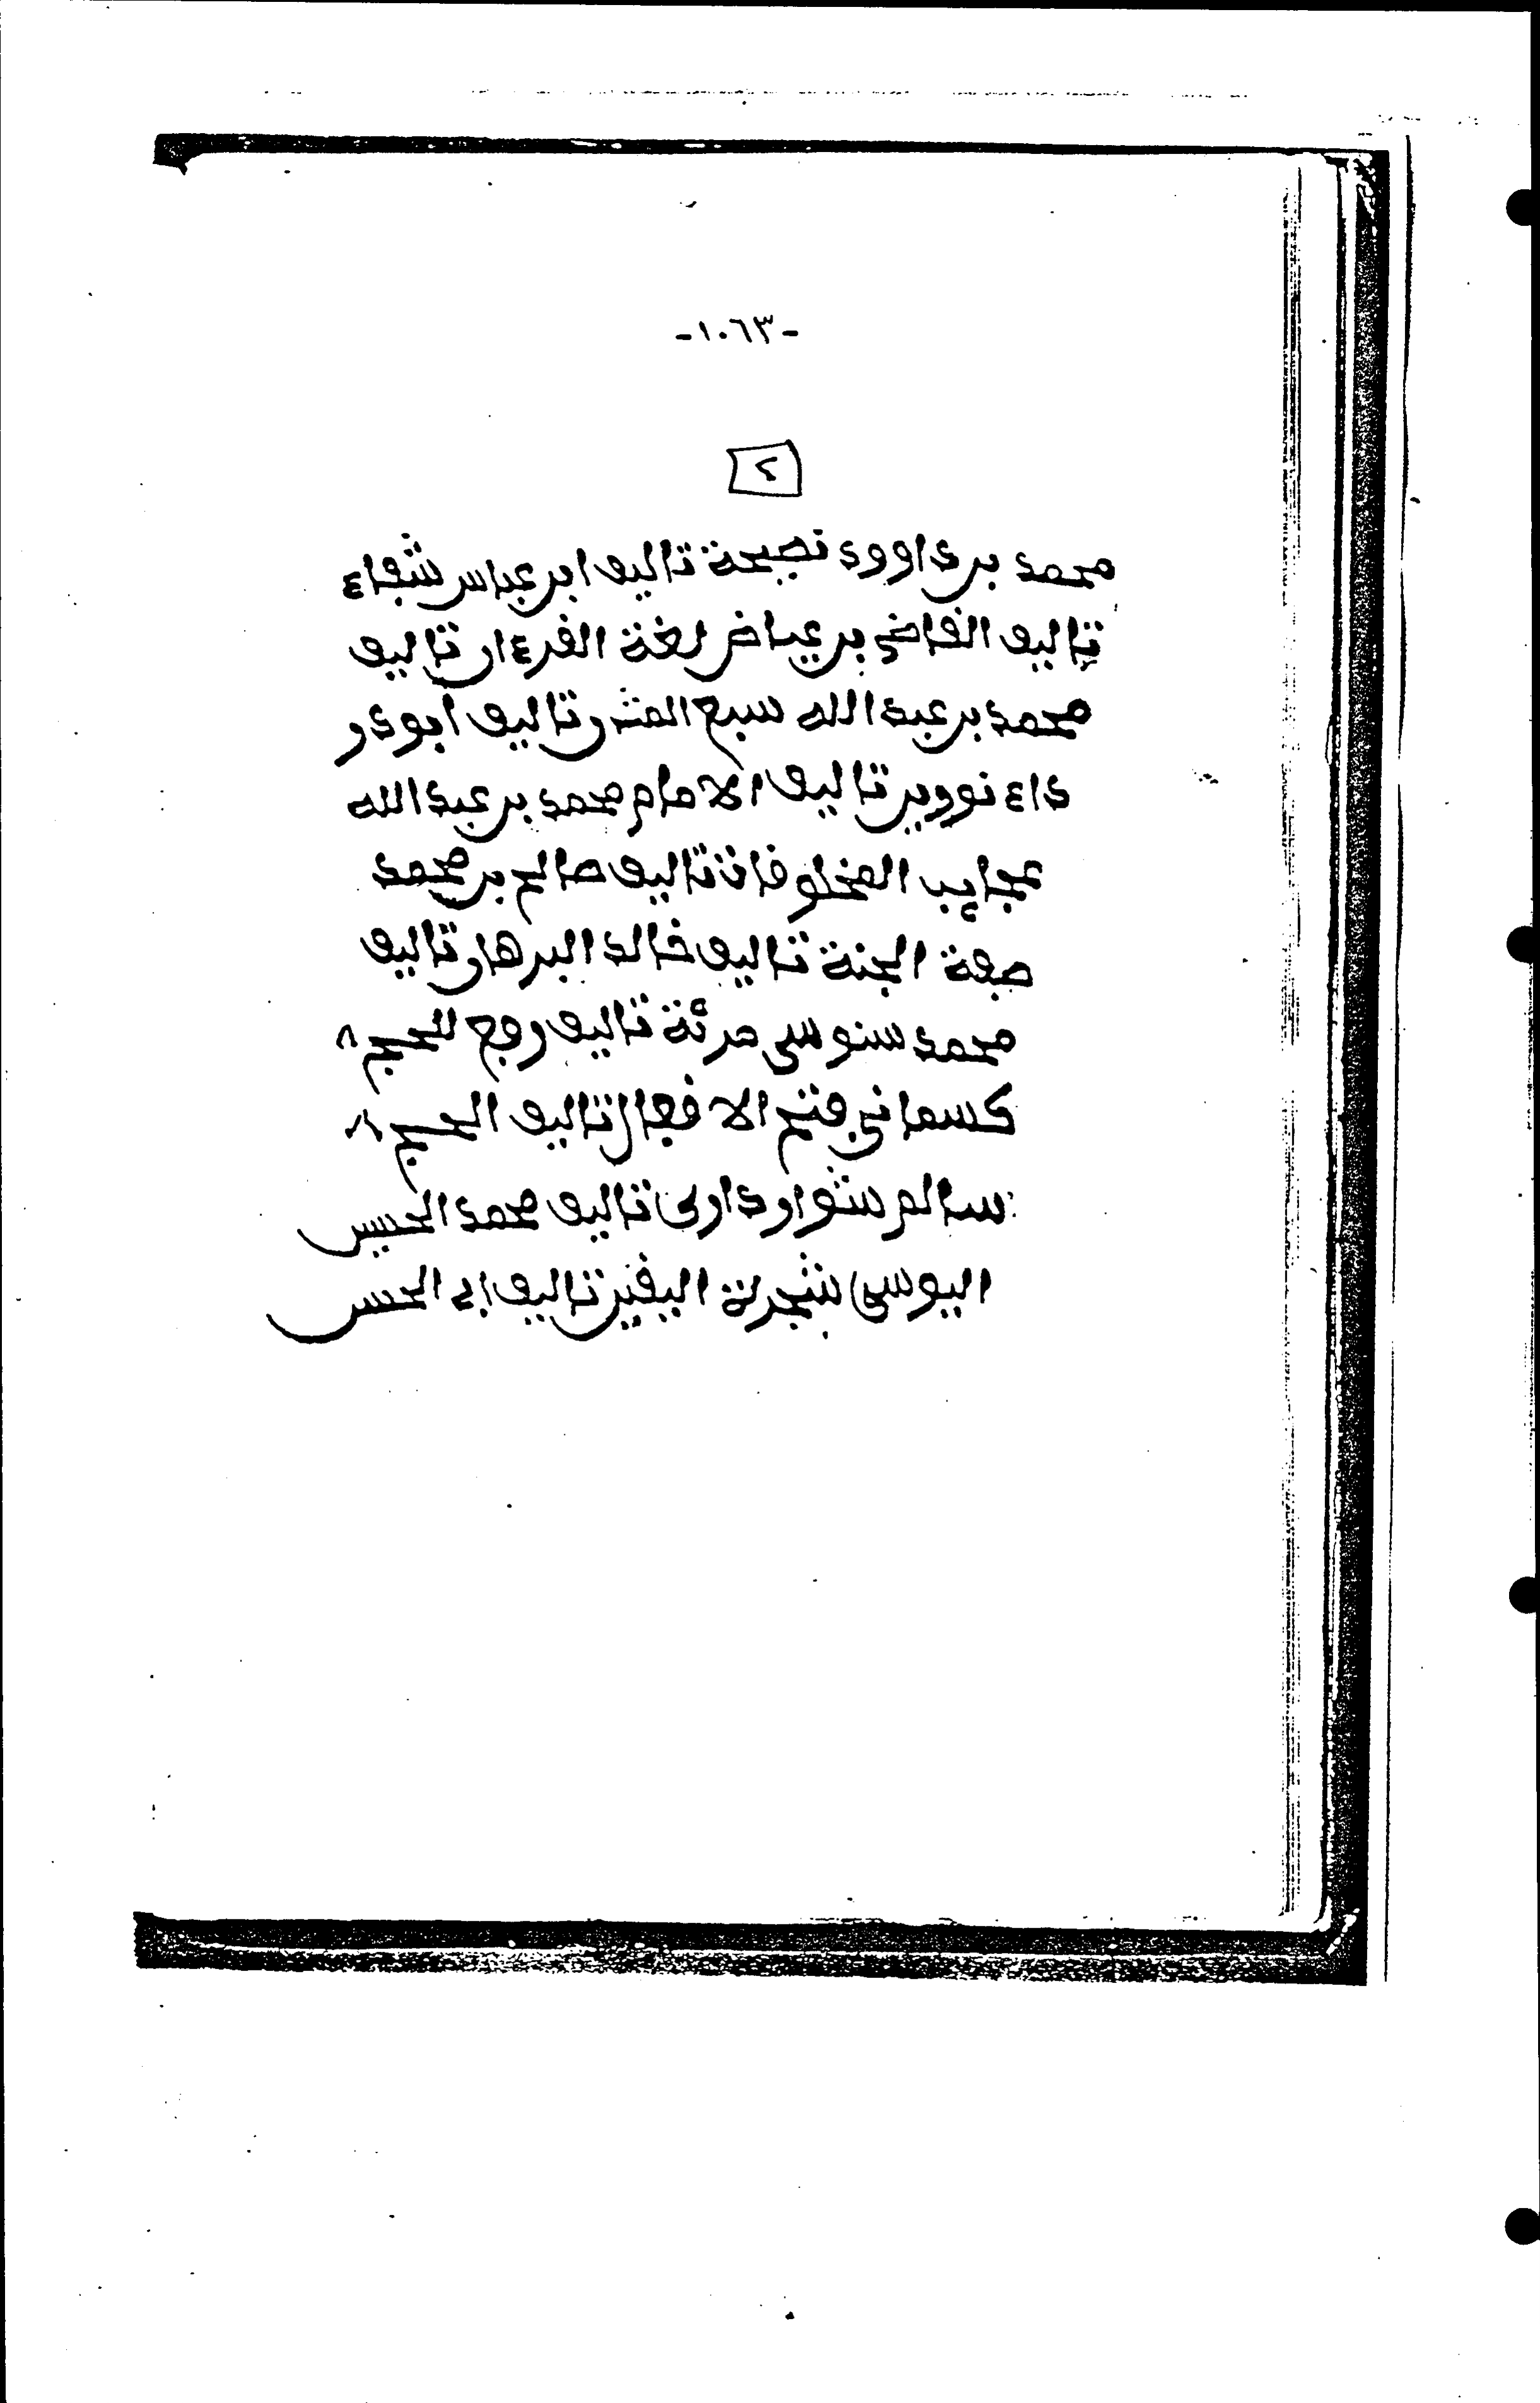 -١٠٦٣-
٢
محمد بن داوود نصيحة تاليف ابن عباس شفاء
تاليف القاضي بن عياض لغة القرءان تاليف
محمد بن عبد الله سبع المثن تاليف ابودر
داء نووين تاليف الامام محمد بن عبد الله
عجايب المخلوقات تاليف صالح بن محمد
صفة الجنة تاليف خالد البرهان تاليف
محمد سنوسى مرئة تاليف روج للحج
كسمانى فتح الافعال تاليف الحج
سالم شوا تاليف محمد الحسن
اليوسى شجرة اليقين تاليف ابى الحسن